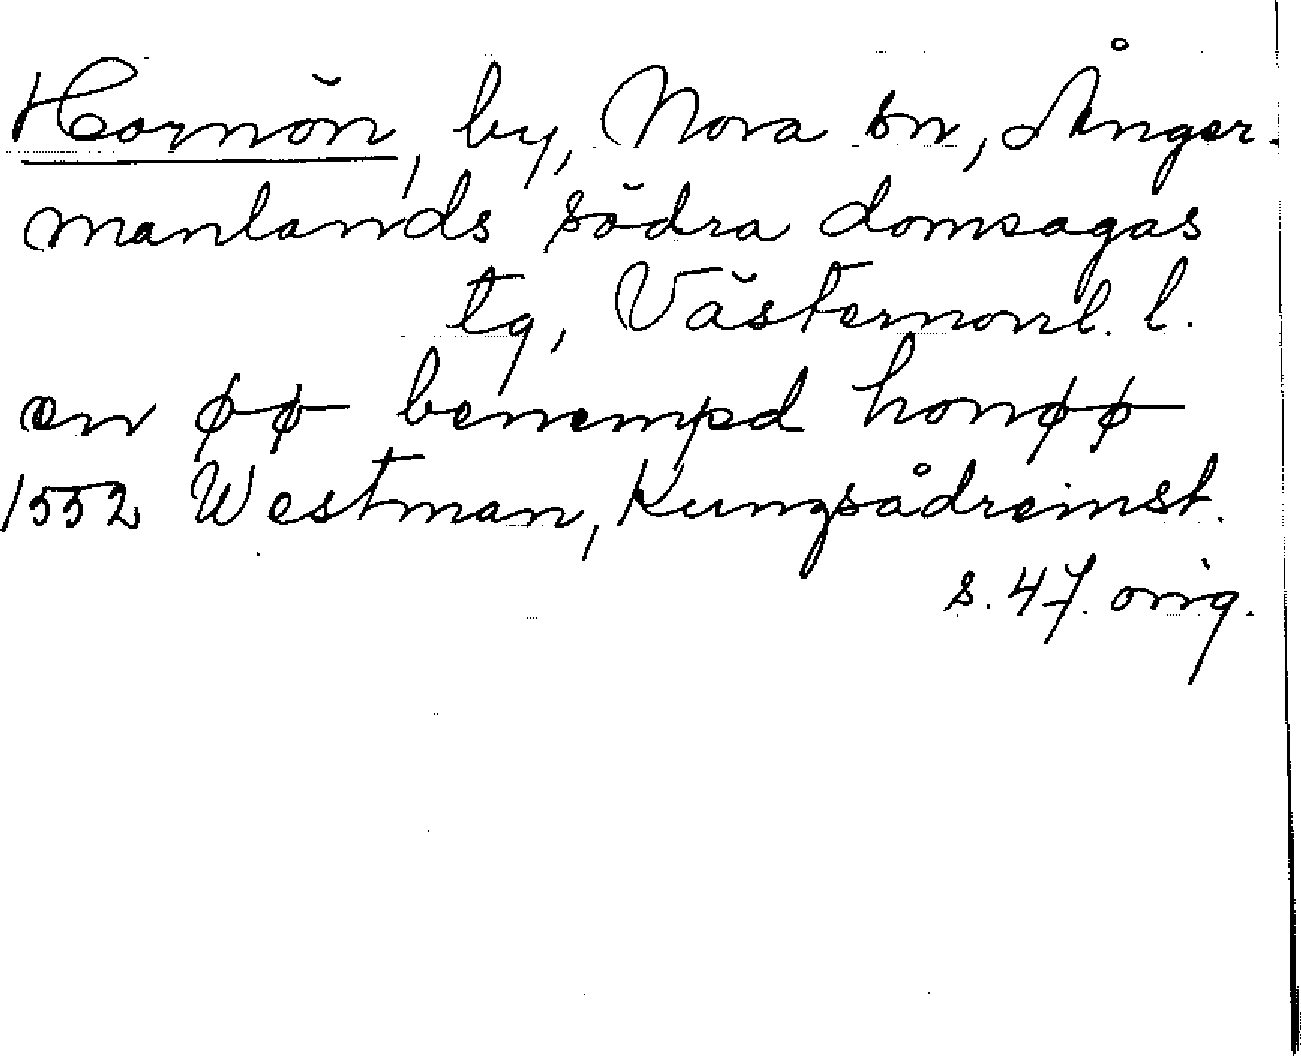 Hornön, by, Nora sn, Ånger-
manlands södra domsagas
tg, Västernorrl. l.
en øø benempd honøø
1552 Westman, Kungsådreinst.
s. 47. orig.